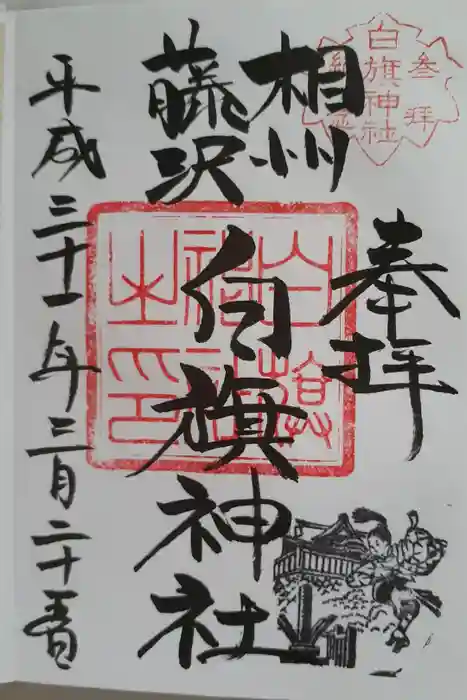 奉拝
相州
藤沢
白旗神社
平成三十一年三月二十五日
白旗神社
参拝
記念
白旗神社之印